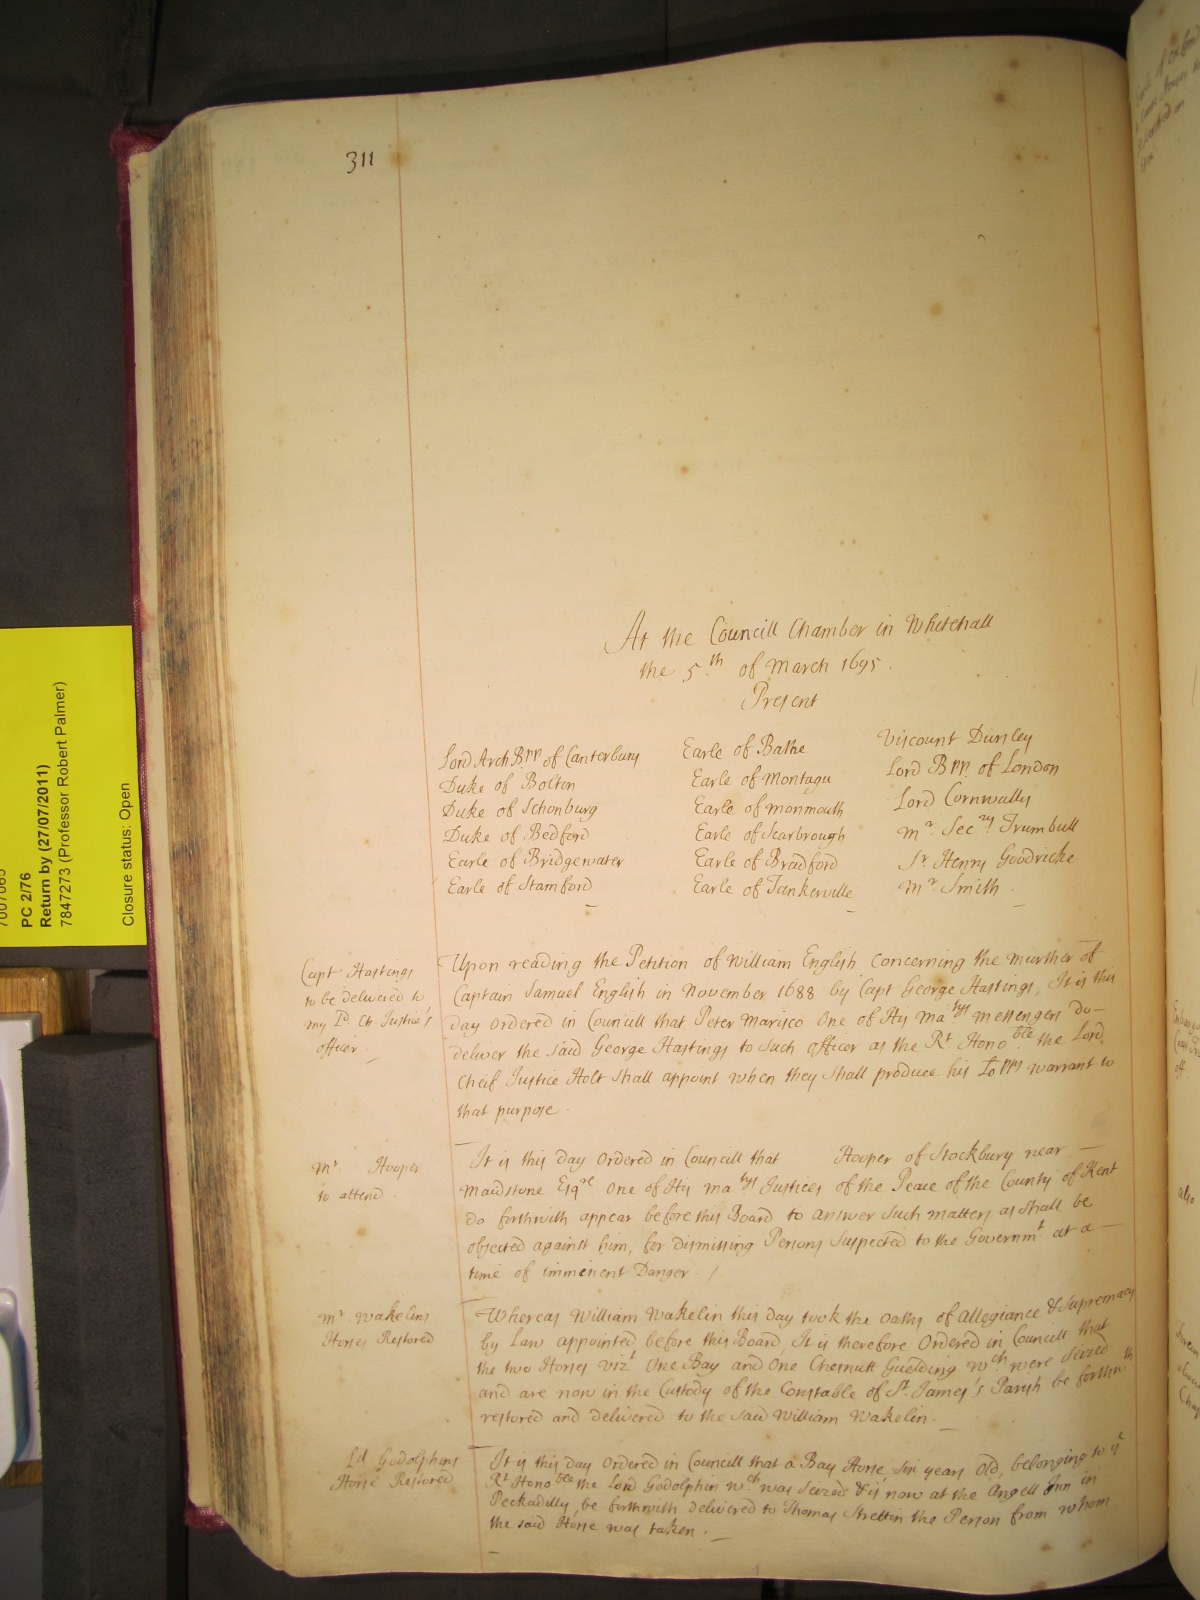 311
At the Councill Chamber in Whitehall
the 5.th of March 1695.
Present
Lord Arch Bpp of Canterbury
Duke of Bolton
Duke of Schonburg
Duke of Bedford
Earle of Bridgewater
Earle of Stamford
Earle of Bathe
Earle of Montagu
Earle of Monmouth
Earle of Scarbrough
Earle of Bradford
Earle of Tankerville
Viscount Dursley
Lord Bpp of London
Lord Cornwallis
Mr. Secry Trumbull
Sr Henry Goodricke
Mr. Smith
Capt Hastings
to be delivered to
my Ld. Ch Justice's
officer
Upon reading the Petition of William English concerning the murther of
Captain Samuel English in November 1688 by Capt George Hastings, It is this
day ordered in Councill that Peter Marisco One of His Matys Messengers do
deliver the said George Hastings to such officer as the Rt Honoble the Lord
Cheif Justice Holt shall appoint when they shall produce his Lopps warrant to
that purpose.
Mr. Hooper
to attend
It is this day Ordered in Councill that Hooper of Stockbury near
Maidstone Esqre One of His Matys Justices of the Peace of the County of Kent
do forthwith appear before this Board to answer such matters as shall be
objected against him, for dismissing Persons Suspected to the Governmt at a
time of imminent Danger. /
Mr Wakelins
Horses Restored
Whereas William Wakelin this day took the Oaths of Allegiance & Supremacy
by Law appointed before this Board, It is therefore Ordered in Councill that
the two Horses Vizt One Bay and One Chesnutt Guelding wch were Seized
and are now in the Custody of the Constable of St. James's Parish be forthwth
restored and delivered to the said William Wakelin.
Ld Godolphins
Horse Restored
It is this day Ordered in Councill that a Bay Horse, six years Old, belonging to ye
Rt Honoble the Lord Godolphin wch was Seized & is now at the Angell Inn in
Peckadilly, be forthwith delivered to Thomas Strettin the Person from whom
the said Horse was taken.
PC 2/76
Return by (27/07/2011)
7847273 (Professor Robert Palmer)
Closure status: Open